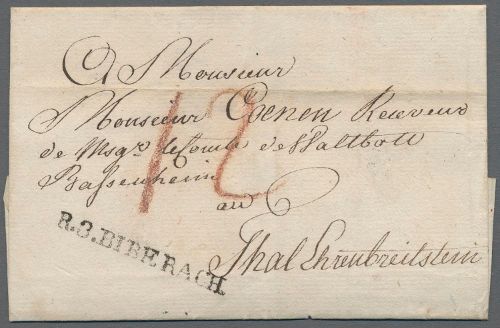 A Monsieur
Monsieur Coenen Receveur
de Msgr. le Comte de Waltbott
Bassenheim
au
Thal Ehrenbreitstein
R.3.BIBERACH.
12